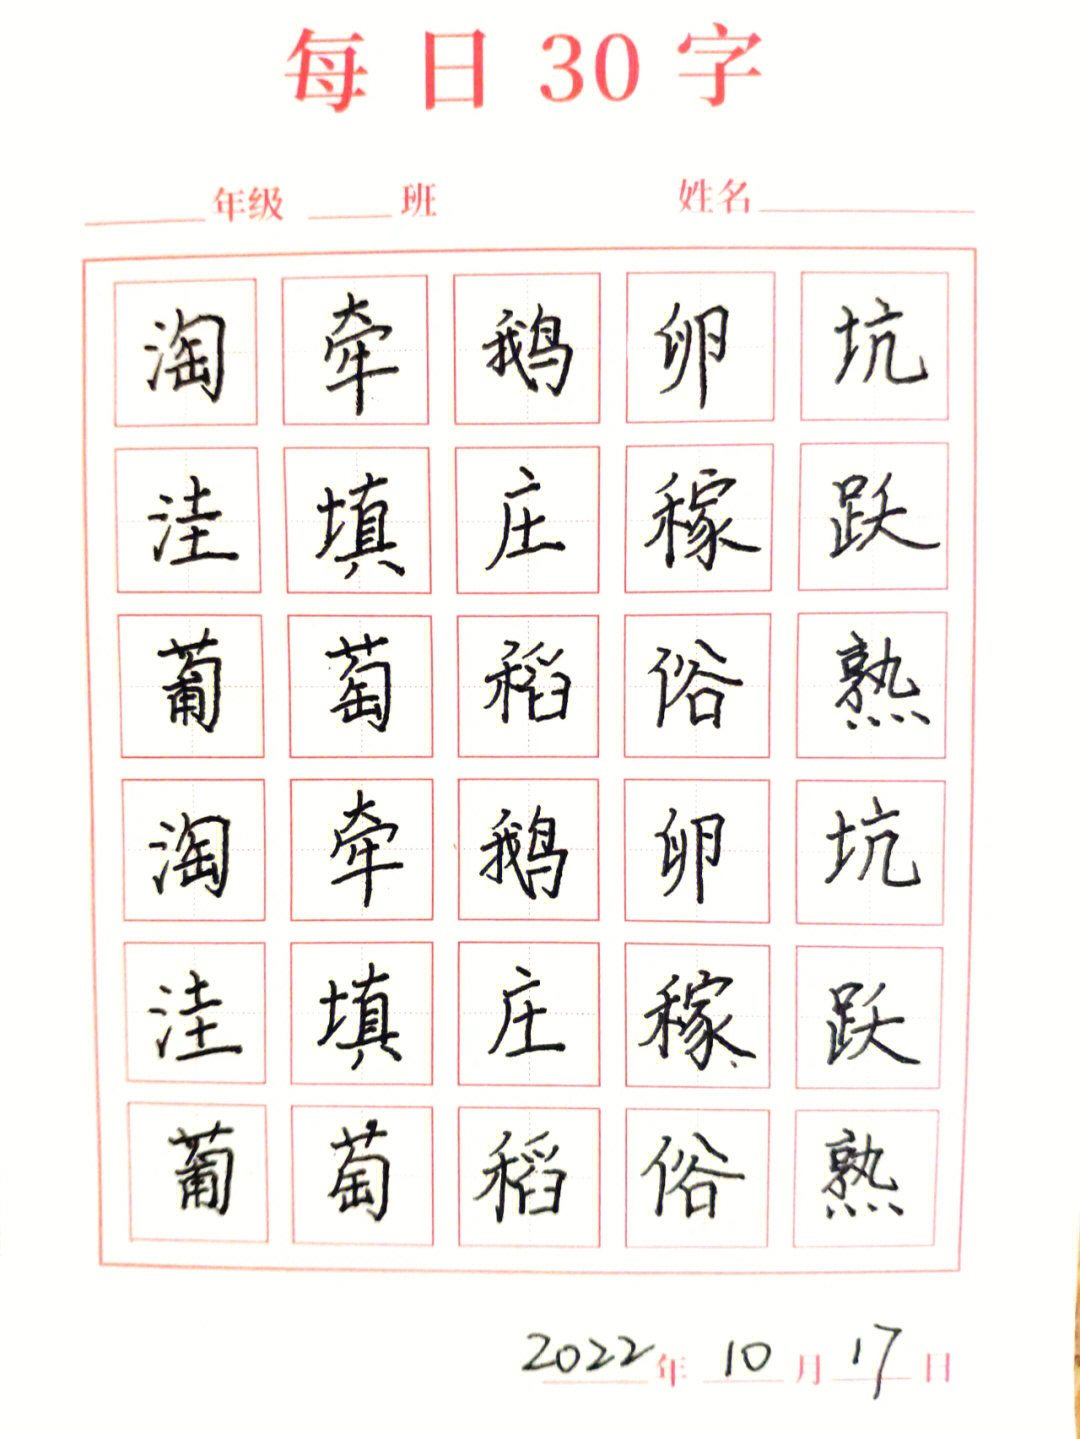 每日30字
____年级 ____班 姓名________
淘 牵 鹅 卵 坑
洼 填 庄 稼 跃
葡 萄 稻 俗 熟
淘 牵 鹅 卵 坑
洼 填 庄 稼 跃
葡 萄 稻 俗 熟
2022年 10月 17日